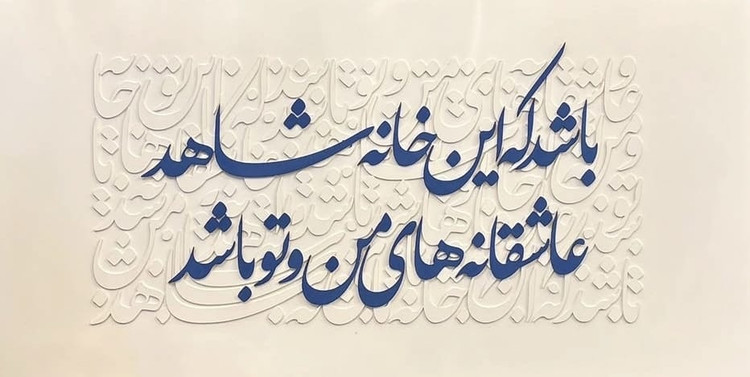 باشد که این خانه شاهد
عاشقانه های من و تو باشد